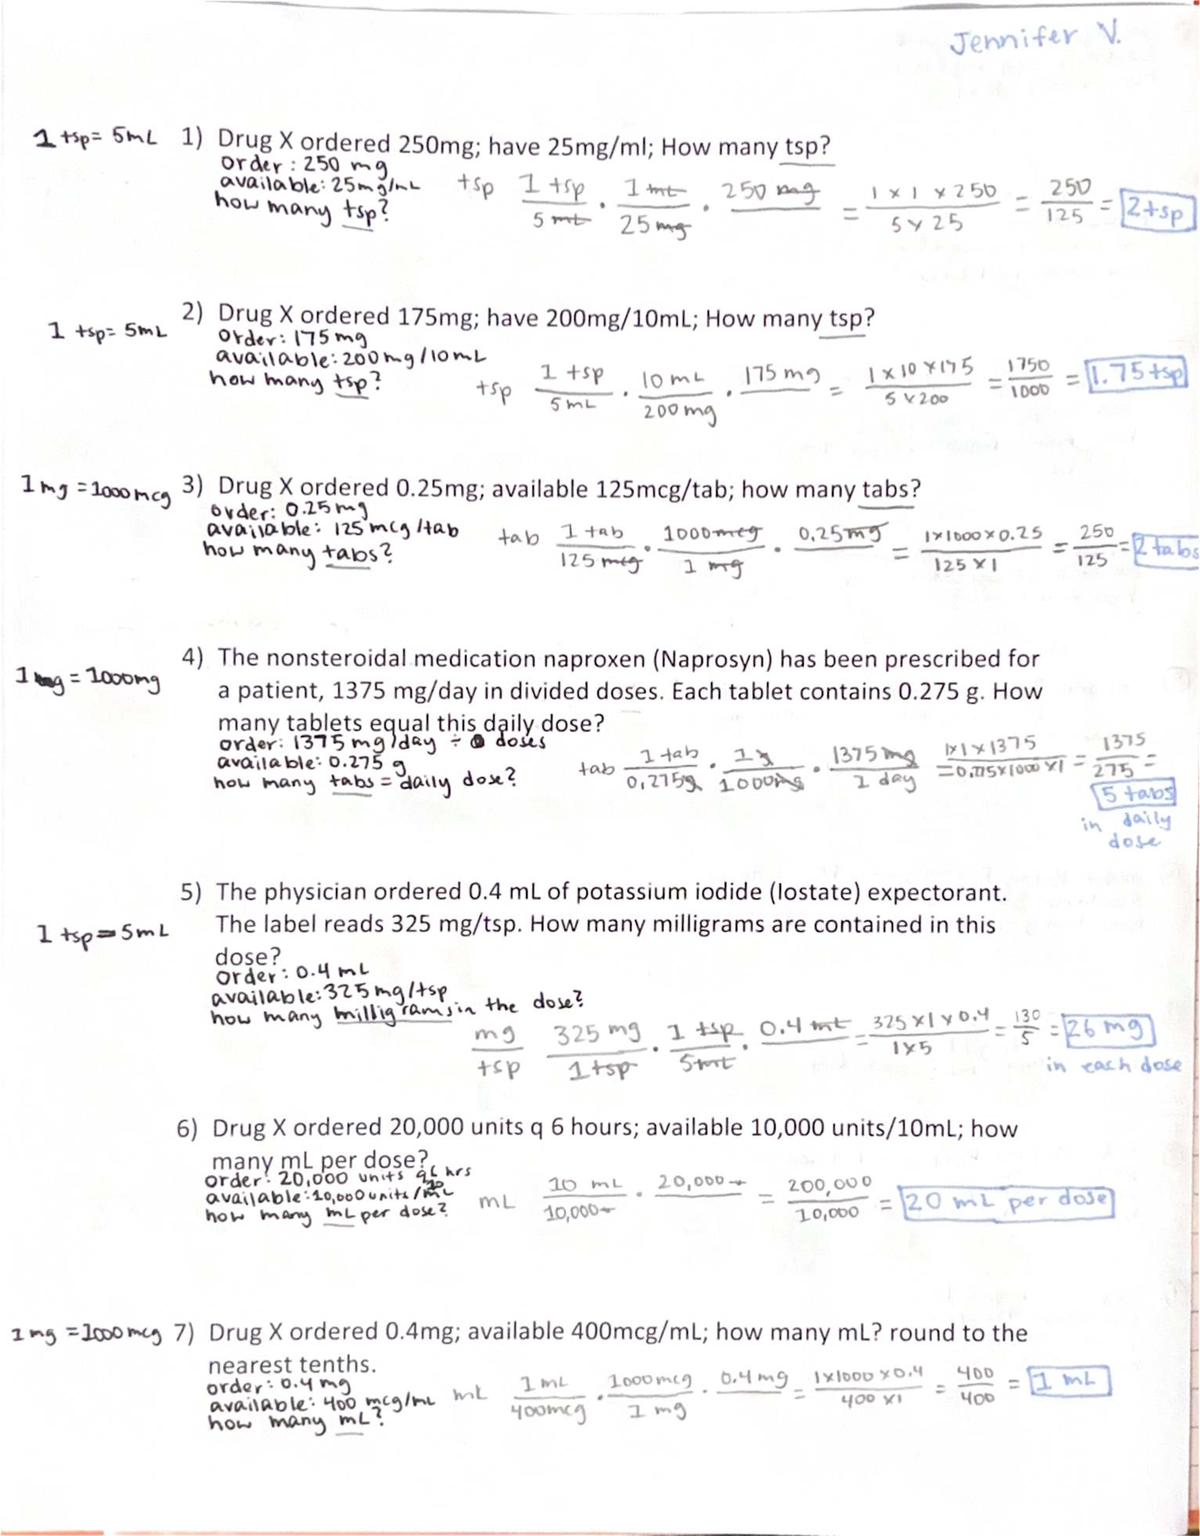 Jennifer V.
1 tsp = 5mL 1) Drug X ordered 250mg; have 25mg/ml; How many tsp?
order: 250 mg
available: 25mg/mL
how many tsp?
tsp 1 tsp/5 mL · 1 mL/25 mg · 250 mg = 1 x 1 x 250/5 x 25 = 250/125 = 2 tsp
1 tsp = 5mL 2) Drug X ordered 175mg; have 200mg/10mL; How many tsp?
order: 175 mg
available: 200 mg/10mL
how many tsp?
tsp 1 tsp/5 mL · 10 mL/200 mg · 175 mg = 1 x 10 x 175/5 x 200 = 1750/1000 = 1.75 tsp
1 mg = 1000 mcg 3) Drug X ordered 0.25mg; available 125mcg/tab; how many tabs?
order: 0.25 mg
available: 125 mcg/tab
how many tabs?
tab 1 tab/125 mcg · 1000 mcg/1 mg · 0.25 mg = 1x1000x0.25/125 x 1 = 250/125 = 2 tabs
4) The nonsteroidal medication naproxen (Naprosyn) has been prescribed for
1 g = 1000mg a patient, 1375 mg/day in divided doses. Each tablet contains 0.275 g. How
many tablets equal this daily dose?
order: 1375 mg/day ÷ doses
available: 0.275 g
how many tabs = daily dose?
tab 1 tab/0.275g · 1g/1000mg · 1375 mg/1 day = 1x1x1375/0.275x1000x1 = 1375/275 =
5 tabs
in daily
dose
5) The physician ordered 0.4 mL of potassium iodide (Iostate) expectorant.
1 tsp = 5mL The label reads 325 mg/tsp. How many milligrams are contained in this
dose?
order: 0.4 mL
available: 325 mg/tsp
how many milligrams in the dose?
mg/tsp 325 mg/1 tsp · 1 tsp/5 mL · 0.4 mL = 325 x 1 x 0.4/1 x 5 = 130/5 = 26 mg
in each dose
6) Drug X ordered 20,000 units q 6 hours; available 10,000 units/10mL; how
many mL per dose?
order: 20,000 units q6 hrs
available: 10,000 units/10 mL
how many mL per dose?
mL 10 mL/10,000 · 20,000 = 200,000/10,000 = 20 mL per dose
1 mg = 1000 mcg 7) Drug X ordered 0.4mg; available 400mcg/mL; how many mL? round to the
nearest tenths.
order: 0.4 mg
available: 400 mcg/mL
how many mL?
mL 1 mL/400mcg · 1000mcg/1 mg · 0.4 mg = 1x1000 x 0.4/400 x 1 = 400/400 = 1 mL